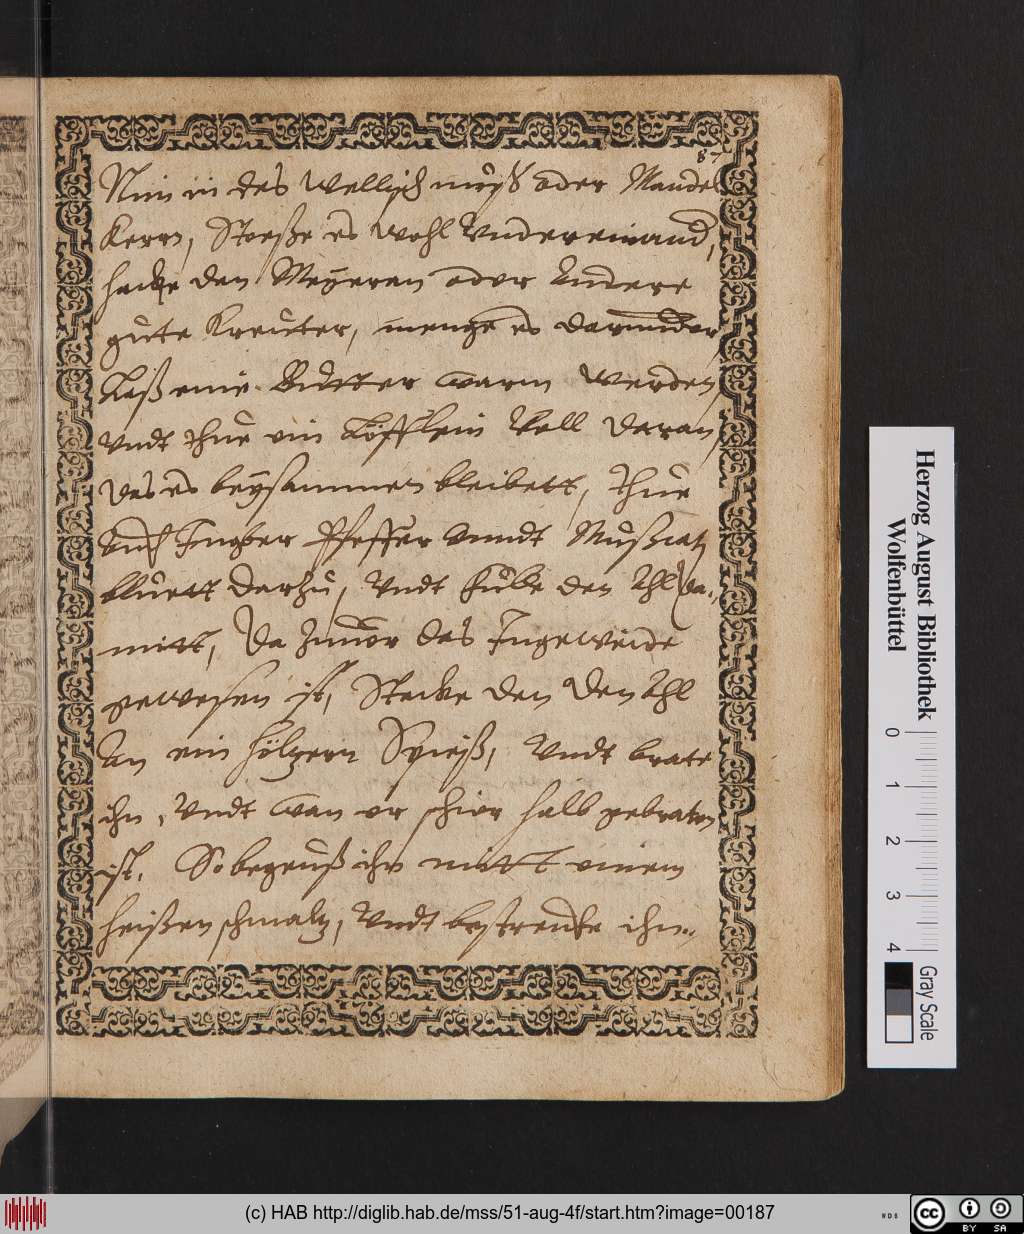 87
Nim in des Wellisch nuß oder Mandel
Kern, Stoeße es wohl Vndereinand,
hacke den Meyeran oder Andere
gute Kreuter, menge es darunder,
Laß eine Butter warm werden,
Vndt thue ein Löfflein Voll daran,
das es beysammen bleibett, thue
Auch Ingber Pfeffer vnndt Mußcat
bluett darzu, Vndt Fülle den Ahl da„
mitt, da zuuor das Ingeweide
gewesen ist, Stecke den den Ahl
An ein höltzern Spieß, Vndt brate
ihn, Vndt wan er schier halb gebraten
ist. So begeuß ihn mitt einem
heißen schmaltz, Vndt bestreuhe ihn„
Herzog August Bibliothek
Wolfenbüttel
0 1 2 3 4
Gray Scale
(c) HAB http://diglib.hab.de/mss/51-aug-4f/start.htm?image=00187
WDB
cc BY SA